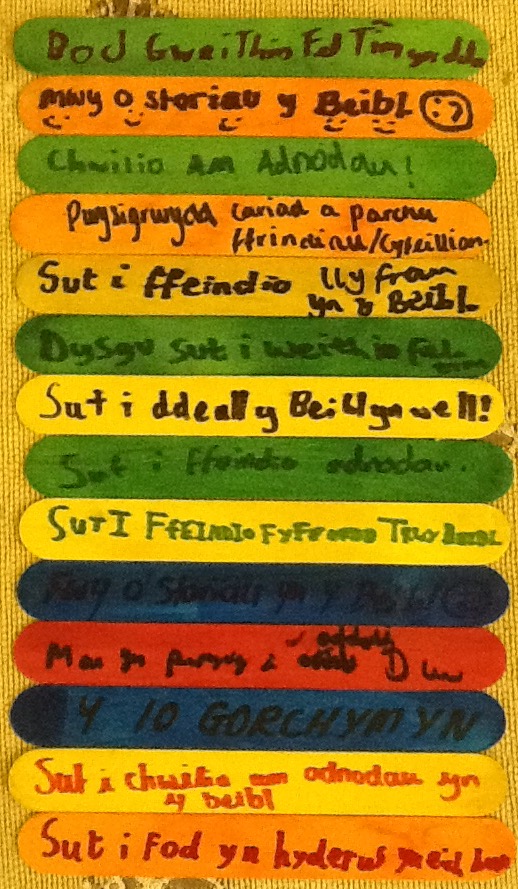 Bod Gweithio Fel Tîm
mwy o storiau y Beibl
Chwilio AM Adnodau!
Pwysigrwydd cariad a parchu
ffrindiau/Cyfeillion
Sut i ffeindio llyfrau
yn y Beibl
Dysgu sut i weithio fel
Sut i ddeall y Beibl yn well!
Sut i ffeindio adnodau.
SUT I FFEINDIO
Mwy o storiau yn y Beibl
Mae yn bwysig i Duw
Y 10 GORCHYMYN
Sut i chwilio am adnodau yn
y beibl
Sut i Fod yn hyderus